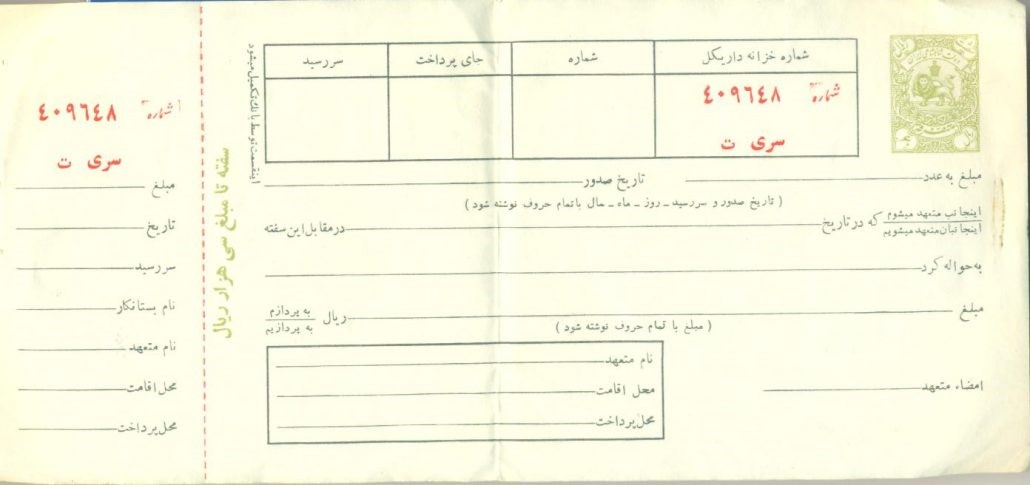 شماره خزانه داریکل	شماره	جای پرداخت	سررسید
شماره ٤٠٩٦٤٨
سری ت
اینقسمت توسط بانک تکمیل میشود
مبلغ به عدد تاریخ صدور
( تاریخ صدور و سررسید ـ روز ـ ماه ـ سال باتمام حروف نوشته شود )
اینجانب متعهد میشوم
اینجانبان متعهد میشویم
که در تاریخ در مقابل این سفته
به حواله کرد
مبلغ ریال
به پردازم
به پردازیم
( مبلغ با تمام حروف نوشته شود )
نام متعهد
محل اقامت
محل پرداخت
امضاء متعهد
سفته تا مبلغ سی هزار ریال
شماره ٤٠٩٦٤٨
سری ت
مبلغ
تاریخ
سررسید
نام بستانکار
نام متعهد
محل اقامت
محل پرداخت